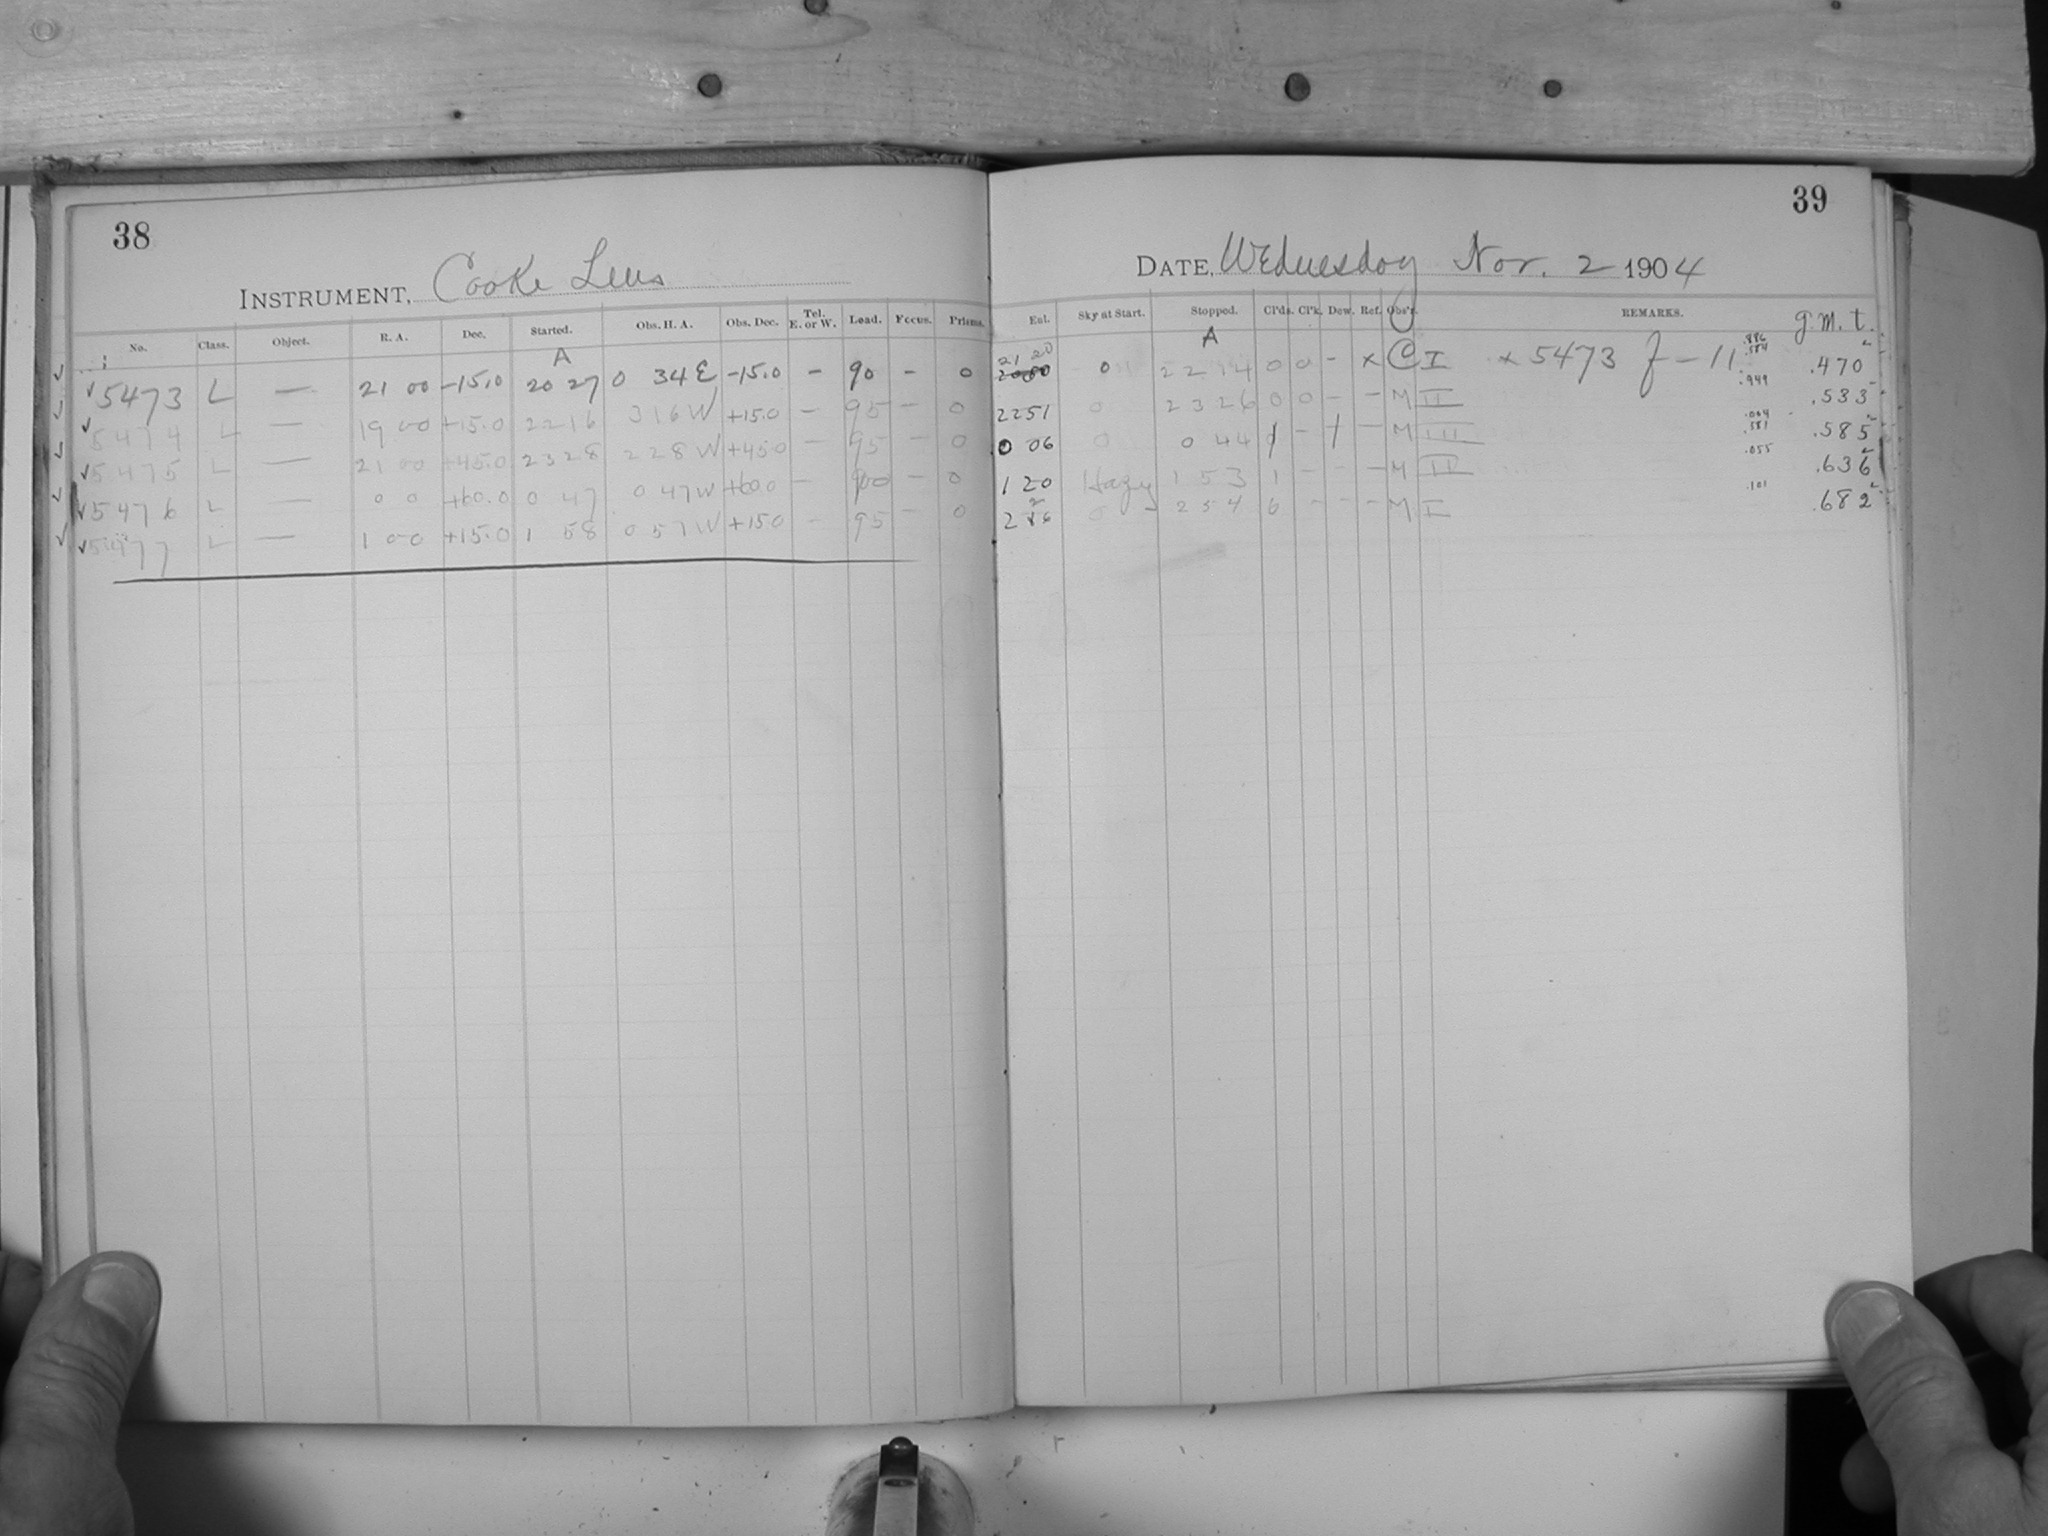 38
INSTRUMENT, Cooke Lens
No. Class. Object. R. A. Dec. Started. Obs. H. A. Obs. Dec. Tel. E. or W. Load. Focus. Prisms.
A
✓5473 L — 21 00 -15.0 20 27 0 34 E -15.0 - 90 - 0
✓5474 L — 19 00 +15.0 22 16 3 16 W +15.0 - 95 - 0
✓5475 L — 21 00 +45.0 23 28 2 28 W +45.0 - 95 - 0
✓5476 L — 0 0 +60.0 0 47 0 47 W +60.0 - 900 - 0
✓5477 L — 1 00 +15.0 1 58 0 57 W +15.0 - 95 - 0
39
DATE, Wednesday Nov. 2 1904
Ent. Sky at Start. Stopped. Cl'ds. Cl'k. Dew. Ref. Obs'r. REMARKS. g.m.t.
A
21 20 0 22 14 0 0 - x C I x 5473 f - 11 .470
22 51 0 23 26 0 0 - - M II .949 .533
0 06 0 0 44 - - M III .585
1 20 Hazy 1 53 1 - - - M IV .055 .636
2 0 2 54 6 - - - M I .101 .682